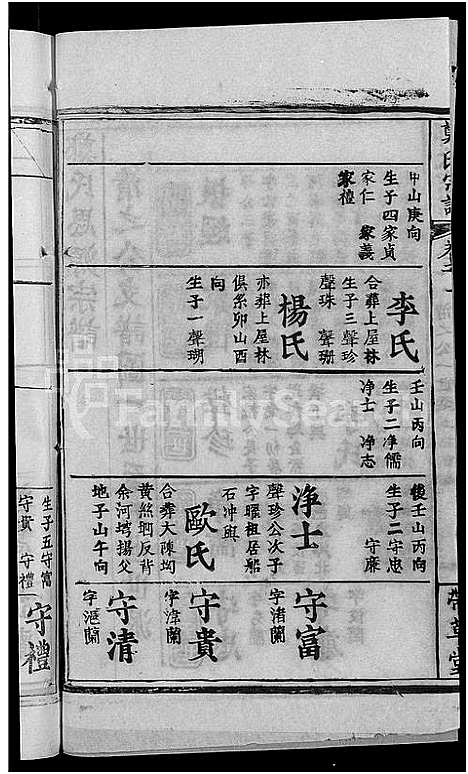 鄭氏宗譜
卷之一
甲山庚向
生子四家貞
家仁 家義
家禮
李氏
合葬上屋林
生子三聲珍
聲珠 聲珊
楊氏
亦葬上屋林
俱系卯山酉
向
生子一聲瑚
壬山丙向
生子二净儒
净士 净志
後壬山丙向
生子二守忠
守廉
浄士
聲珍公次子
字躍祖居船
石冲與
歐氏
合葬大陳坳
黄無垇反背
余河塆揚父
地子山午向
守富
字渚蘭
守貴
字湋蘭
守清
字漚蘭
帶草堂
生子五守富
守貴 守禮
守禮
FamilySearch